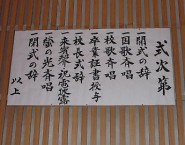 式次第
一開式の辞
一国歌斉唱
一校歌斉唱
一卒業証書授与
一校長式辞
一来賓祝辞祝電披露
一螢の光斉唱
一閉式の辞
以上